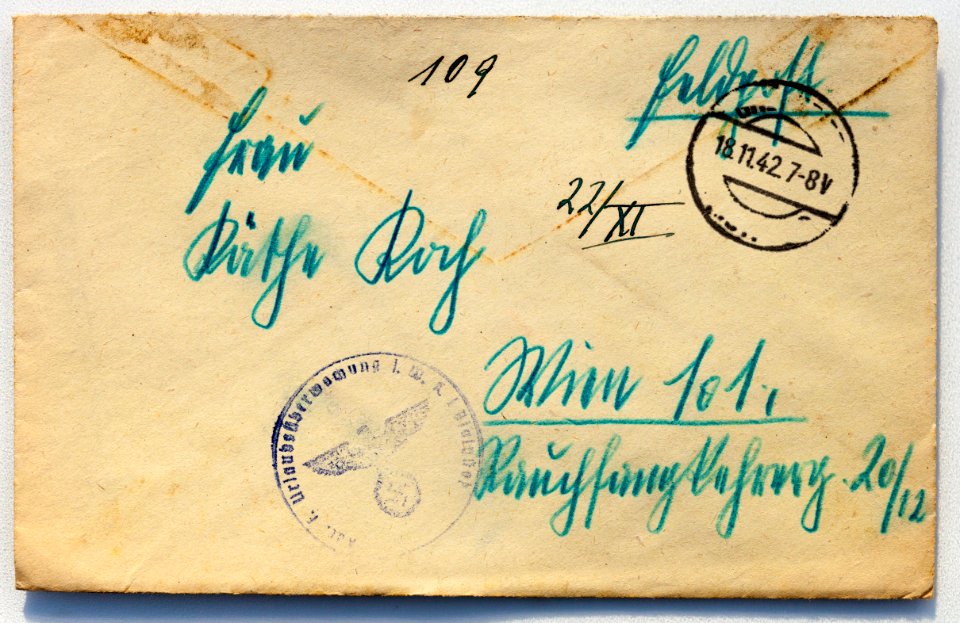 109
Feldpost.
18.11.42.7-8V
Frau
22/XI
Käthe Koch
Wien 101.
Urlaubsüberwachung
Rauchfangkehrerg. 20/12